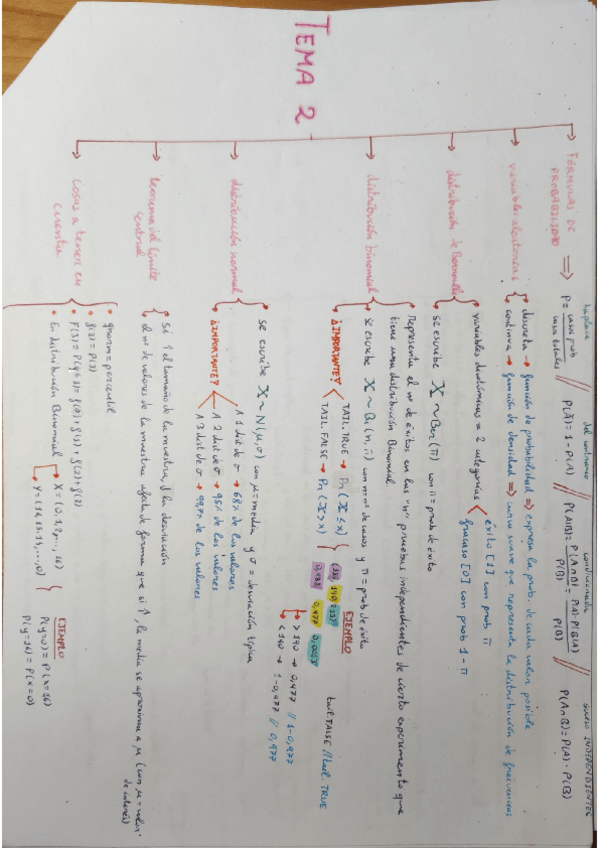 TEMA 2
FÓRMULAS DE PROBABILIDAD ⇒
laplace
P = casos prob / casos totales
del contrario
P(Ā) = 1 - P(A)
condicionada
P(A|B) = P(A∩B) / P(B) = P(A)·P(B|A) / P(B)
suceso INDEPENDIENTES
P(A∩B) = P(A) · P(B)
variables aleatorias
discreta → función de probabilidad ⇒ expresa la prob. de cada valor posible
continua → función de densidad ⇒ curva suave que representa la distribución de frecuencias
distribución de Bernoulli
• variables dicotómicas = 2 categorías
éxito [1] con prob π
fracaso [0] con prob 1 - π
• se escribe X ~ Ber(π) con π = prob de éxito
distribución binomial
• Representa el nº de éxitos en las "n" pruebas independientes de cierto experimento que
tiene una distribución Binomial.
• se escribe X ~ Bi(n, π) con n = nº de casos y π = prob de éxito
¿IMPORTANTE?
TAIL TRUE → Pr (X ≤ x)
TAIL FALSE → Pr (X > x)
EJEMPLO
0,477
> 140 → 0,477 // 1 - 0,477
< 140 → 1 - 0,477 // 0,477
tail FALSE // tail TRUE
distribución normal
• se escribe X ~ N(μ, σ) con μ = media y σ = desviación típica
¿IMPORTANTE?
A 1 dist de σ → 68% de los valores
A 2 dist de σ → 95% de los valores
A 3 dist de σ → 99,7% de los valores
teorema del límite central
• Si ↑ el tamaño de la muestra, ↓ la desviación
• el nº de valores de la muestra afecta de forma que si ↑, la media se aproxima a μ (con μ = valor
de interés)
cosas a tener en cuenta
• qnorm = percentil
• f(2) = P(2)
• F(3) = P(y≤3) = f(0) + f(1) + f(2) + f(3)
• En distribución Binomial
X = (0, 1, 2, ..., 16)
Y = (16, 15, 14, ..., 0)
EJEMPLO
P(y=0) = P(x=16)
P(y=16) = P(x=0)